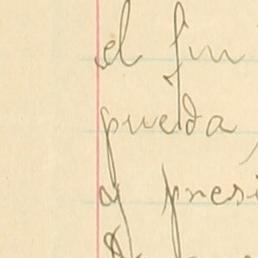 el fin
pueda,
y presi